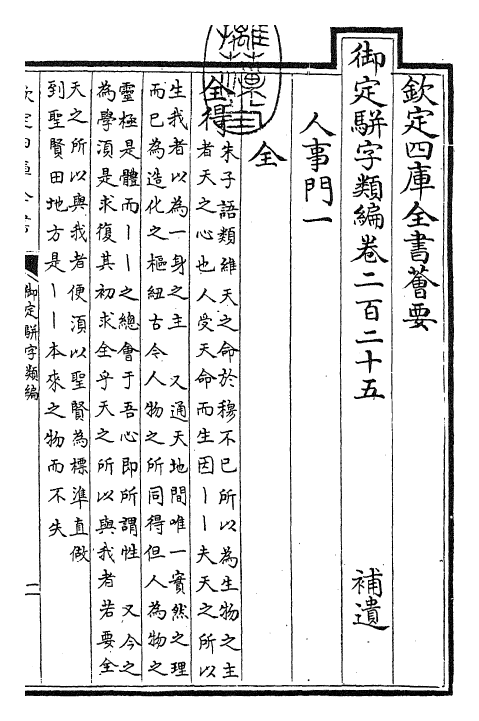 欽定四庫全書薈要
御定駢字類編卷二百二十五　補遺
人事門一
全
全得
朱子語類維天之命於穆不已所以為生物之主
者天之心也人受天命而生因丨丨夫天之所以
生我者以為一身之主　又通天地間唯一實然之理
而已為造化之樞紐古今人物之所同得但人為物之
靈極是體而丨丨之總會于吾心即所謂性　又今之
為學須是求復其初求全乎天之所以與我者若要全
天之所以與我者便須以聖賢為標準直做
到聖賢田地方是丨丨本來之物而不失
御定駢字類編
一